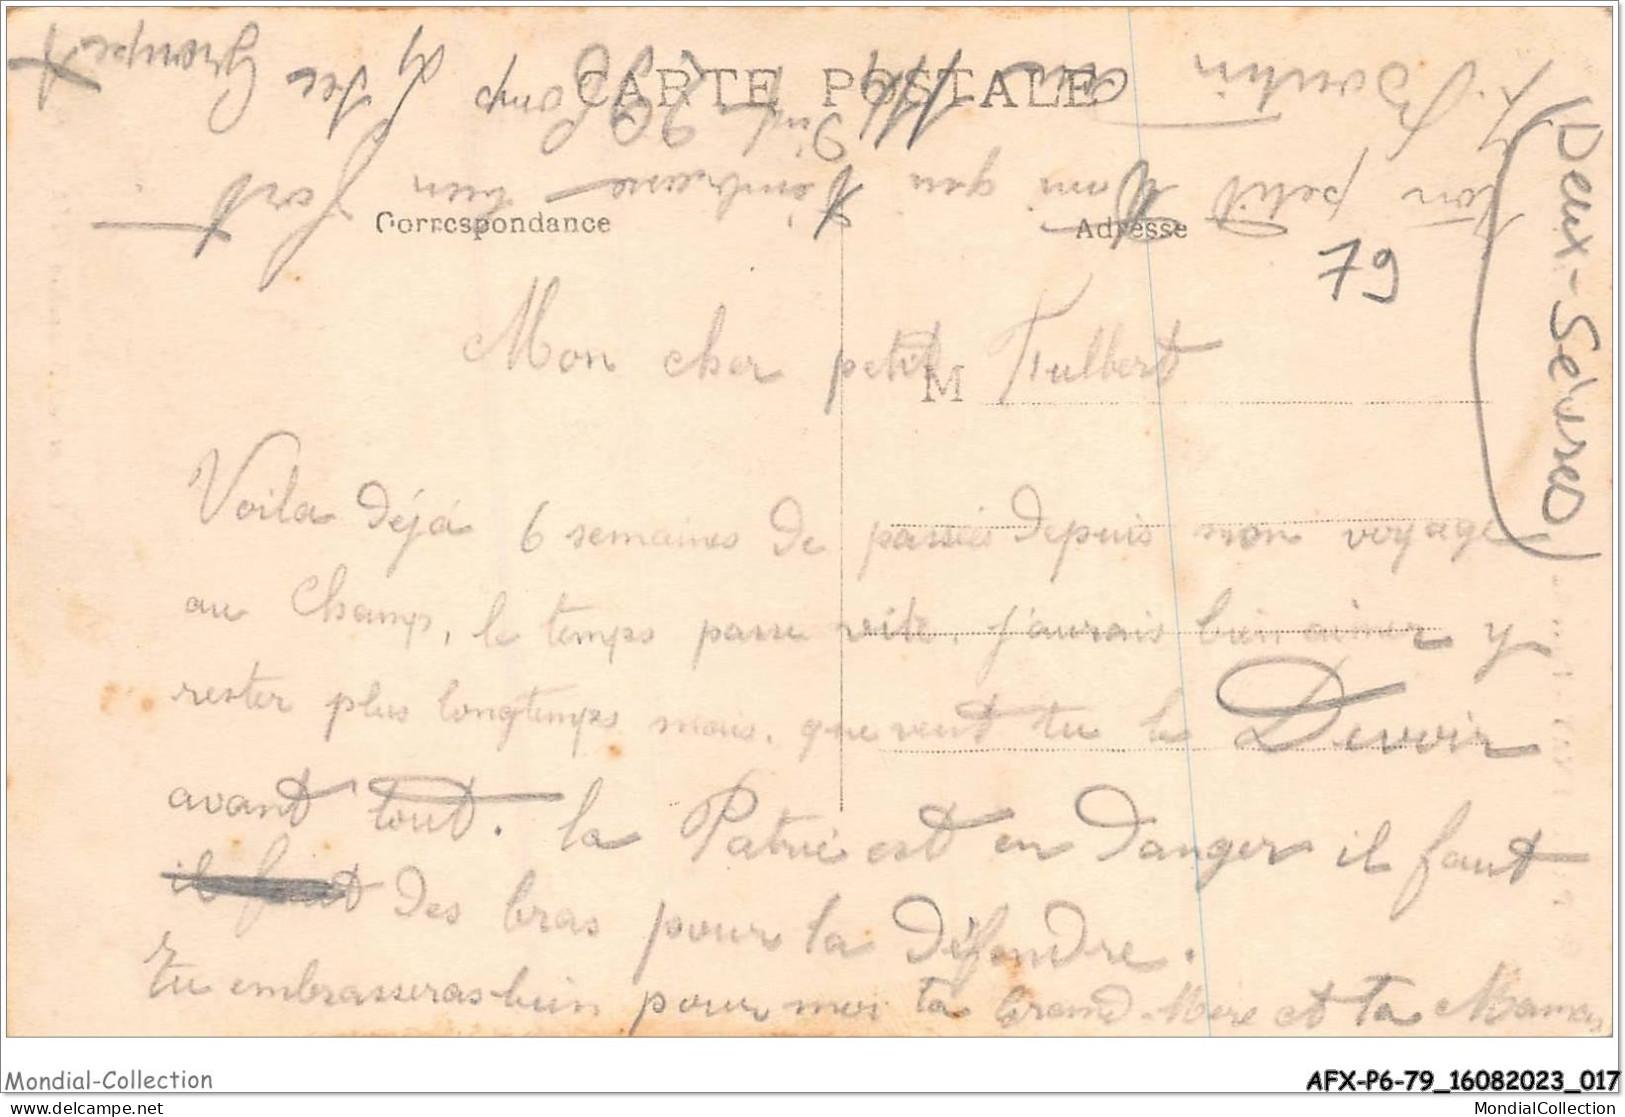 CARTE POSTALE
Correspondance
Adresse
79
(Deux-Sèvres)
M
Mon cher petit Fulbert
Voila déjà 6 semaines de passées depuis mon voyage
au Champ, le temps passe vite, j'aurais bien aimer y
rester plus longtemps mais, que veut tu le Devoir
avant tout. la Patrie est en danger il faut
il faut des bras pour la défendre.
tu embrasseras bien pour moi ta Grand-Mère et ta Maman
Ton petit qui t'embrasse bien fort
Mondial-Collection
AFX-P6-79_16082023_017
www.delcampe.net
MondialCollection